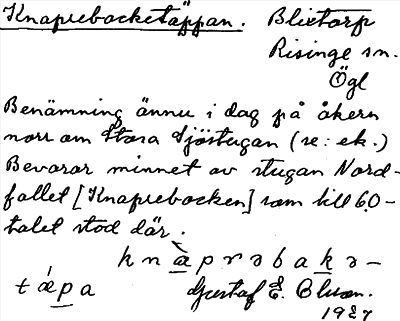 Knaprebacketäppan. Blixtorp
Risinge sn.
Ögl
Benämning ännu i dag på åkern
norr om Stora Sjöstugan (se: ek.)
Bevarar minnet av stugan Nord-
fallet [Knaprebacken] som till 60-
talet stod där.
k n a p r ə b a k ə -
t ǽ p a Gustaf E.
1927